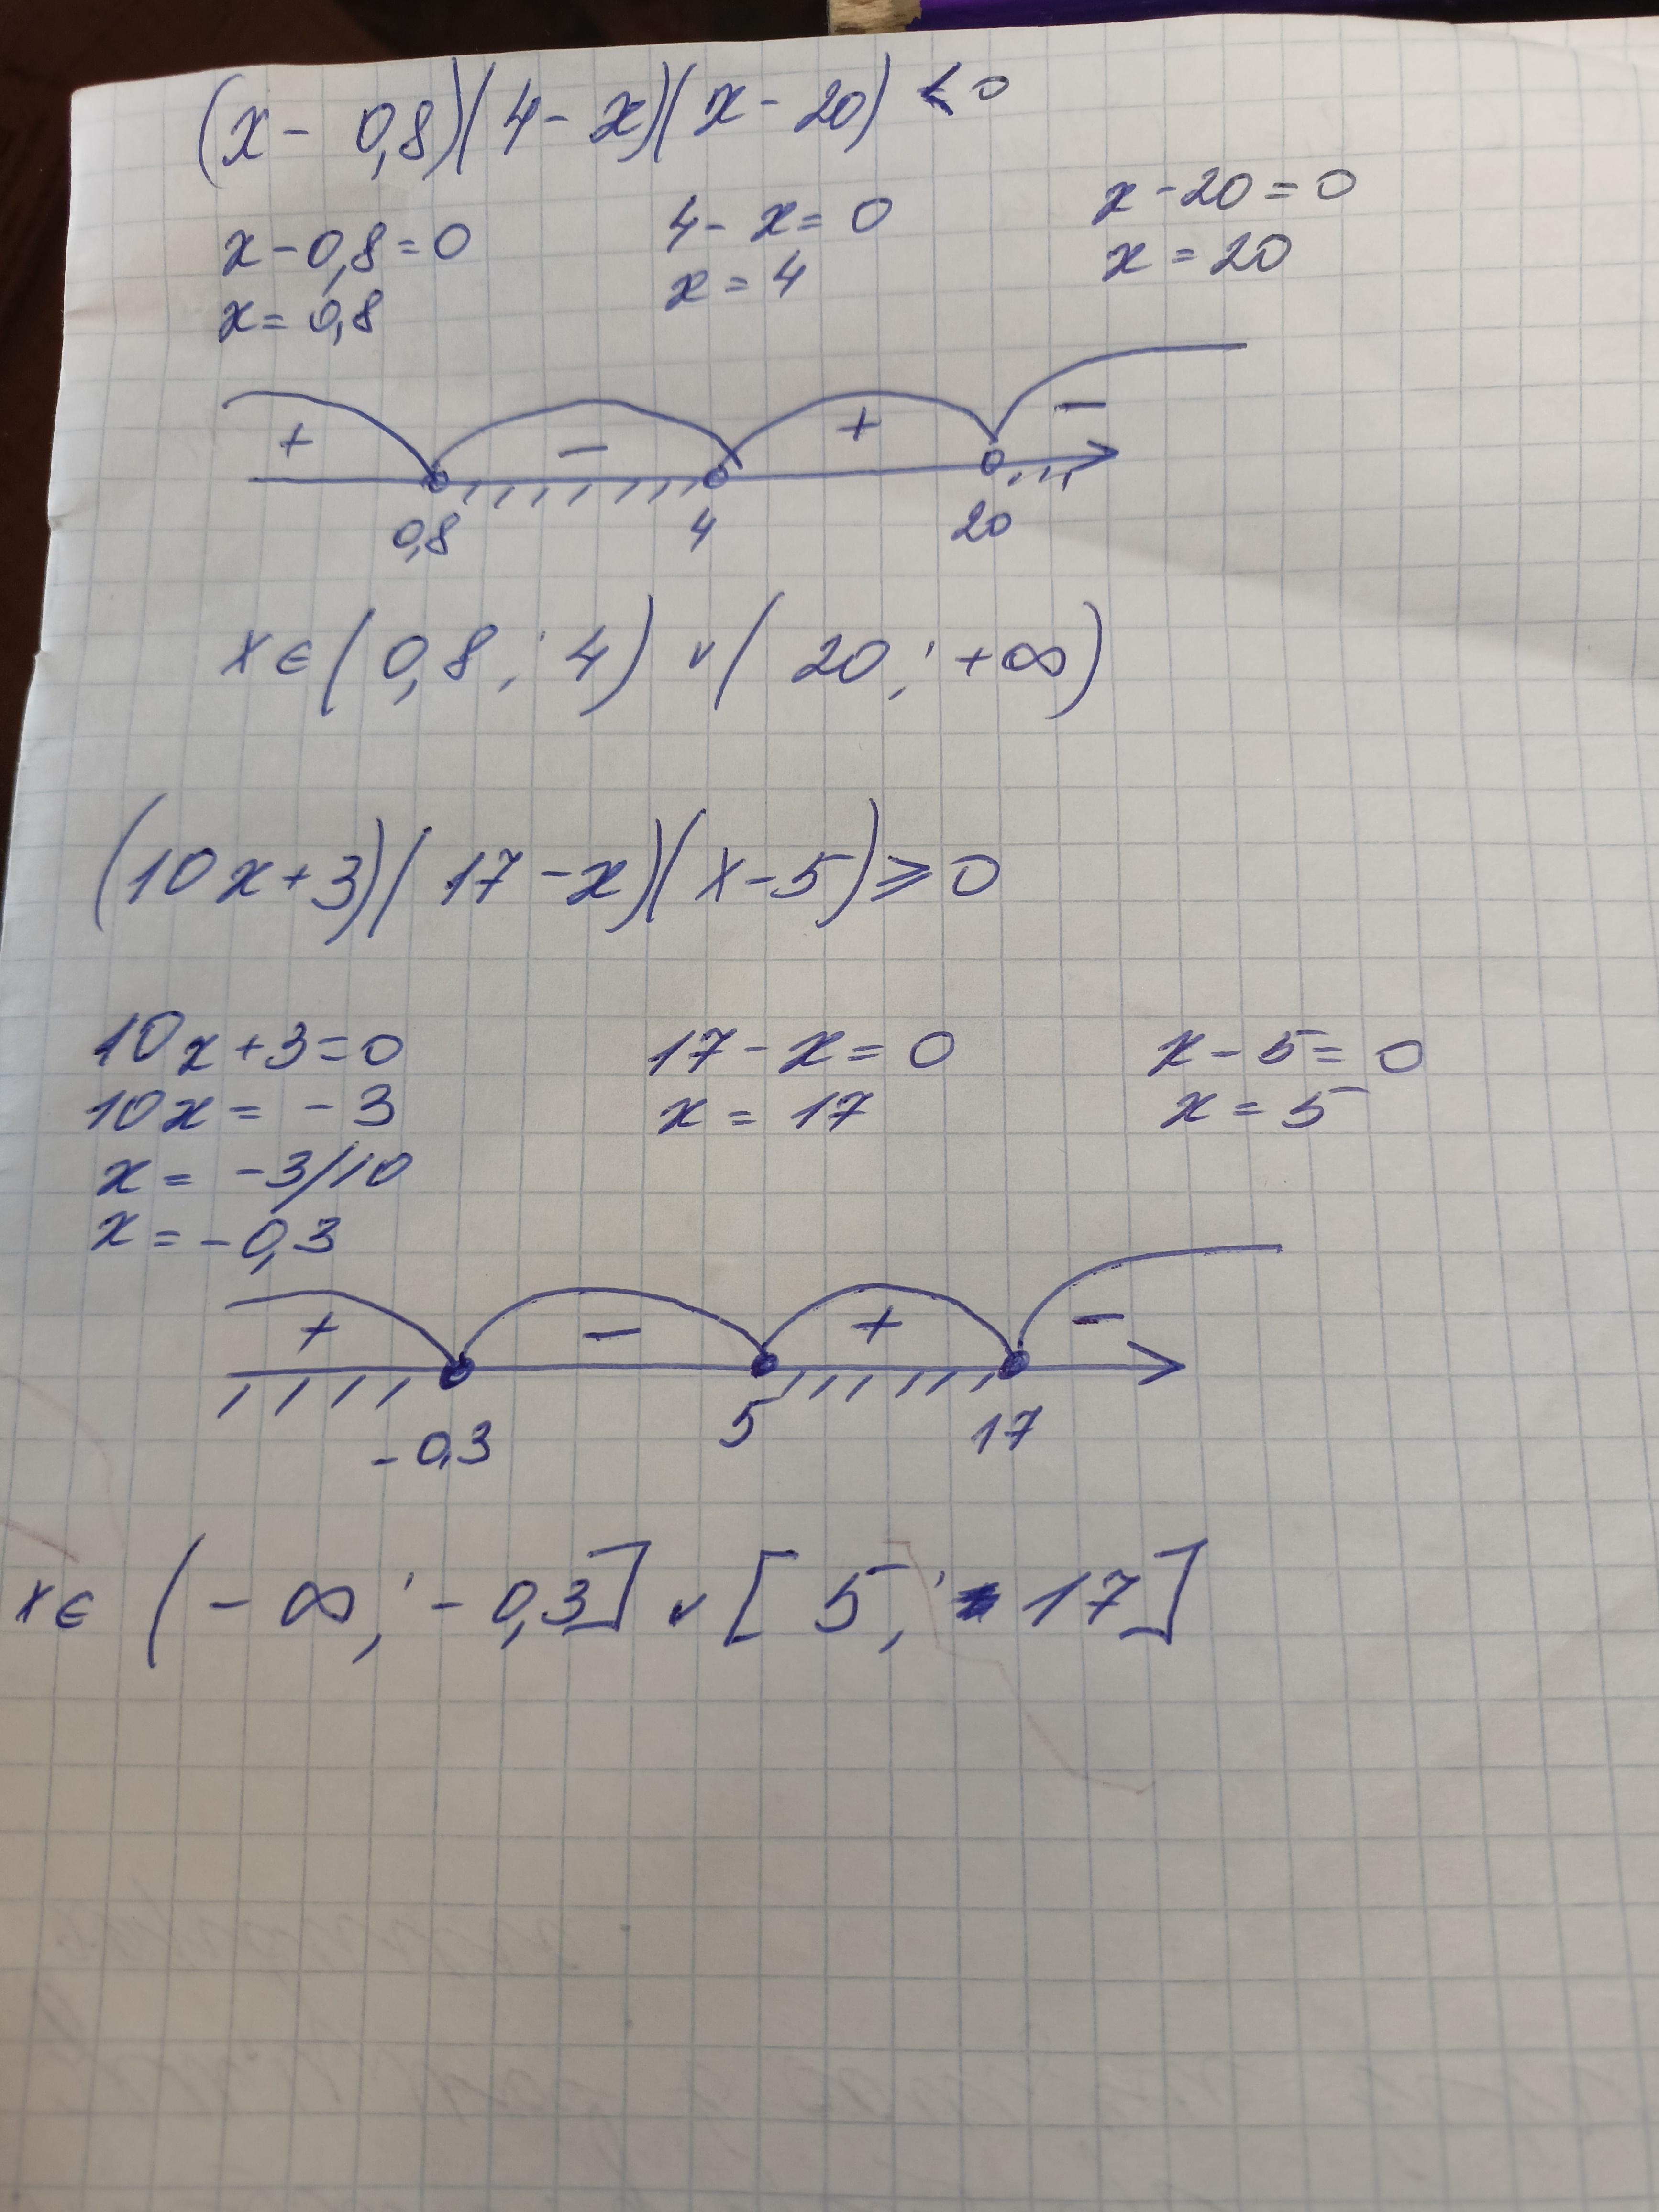 (x - 0,8)(4 - x)(x - 20) < 0
x - 0,8 = 0 4 - x = 0 x - 20 = 0
x = 0,8 x = 4 x = 20
+ − + −
0,8 4 20
x ∈ (0,8 ; 4) ∪ (20 ; +∞)
(10x + 3)(17 - x)(x - 5) ⩾ 0
10x + 3 = 0 17 - x = 0 x - 5 = 0
10x = -3 x = 17 x = 5
x = -3/10
x = -0,3
+ − + −
-0,3 5 17
x ∈ (-∞ ; -0,3] ∪ [5 ; 17]